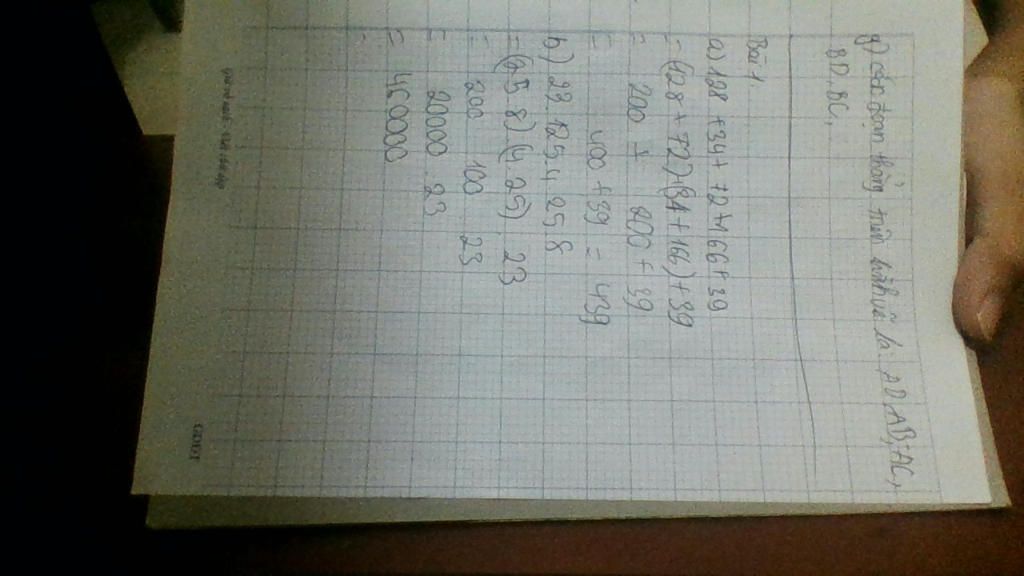 g) các đoạn thẳng trên hình vẽ là: AD, AB, AC,
BD, BC,
Bài 1.
a) 128 + 34 + 72 + 166 + 39
= (128 + 72) + (34 + 166) + 39
= 200 + 200 + 39
= 400 + 39 = 439
b) 23. 125. 4. 25. 8
= (125. 8).(4. 25). 23
= 200 100 23
= 20000. 23
= 460000
GDĐT